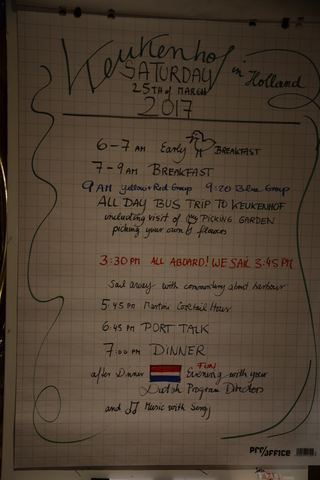 Keukenhof
in Holland
SATURDAY
25TH of MARCH
2017
6-7 AM Early BREAKFAST
7-9 AM BREAKFAST
9 AM Yellow+Red Group 9:20 Blue Group
ALL DAY BUS TRIP TO KEUKENHOF
including visit of PICKING GARDEN
picking your own flowers
3:30 PM ALL ABOARD! WE SAIL 3:45 PM
Sail away with commentary about harbour
5:45 PM Martini Cocktail Hour
6:45 PM PORT TALK
7:00 PM DINNER
FUN
after Dinner Evening with your
Dutch Program Directors
and Music with